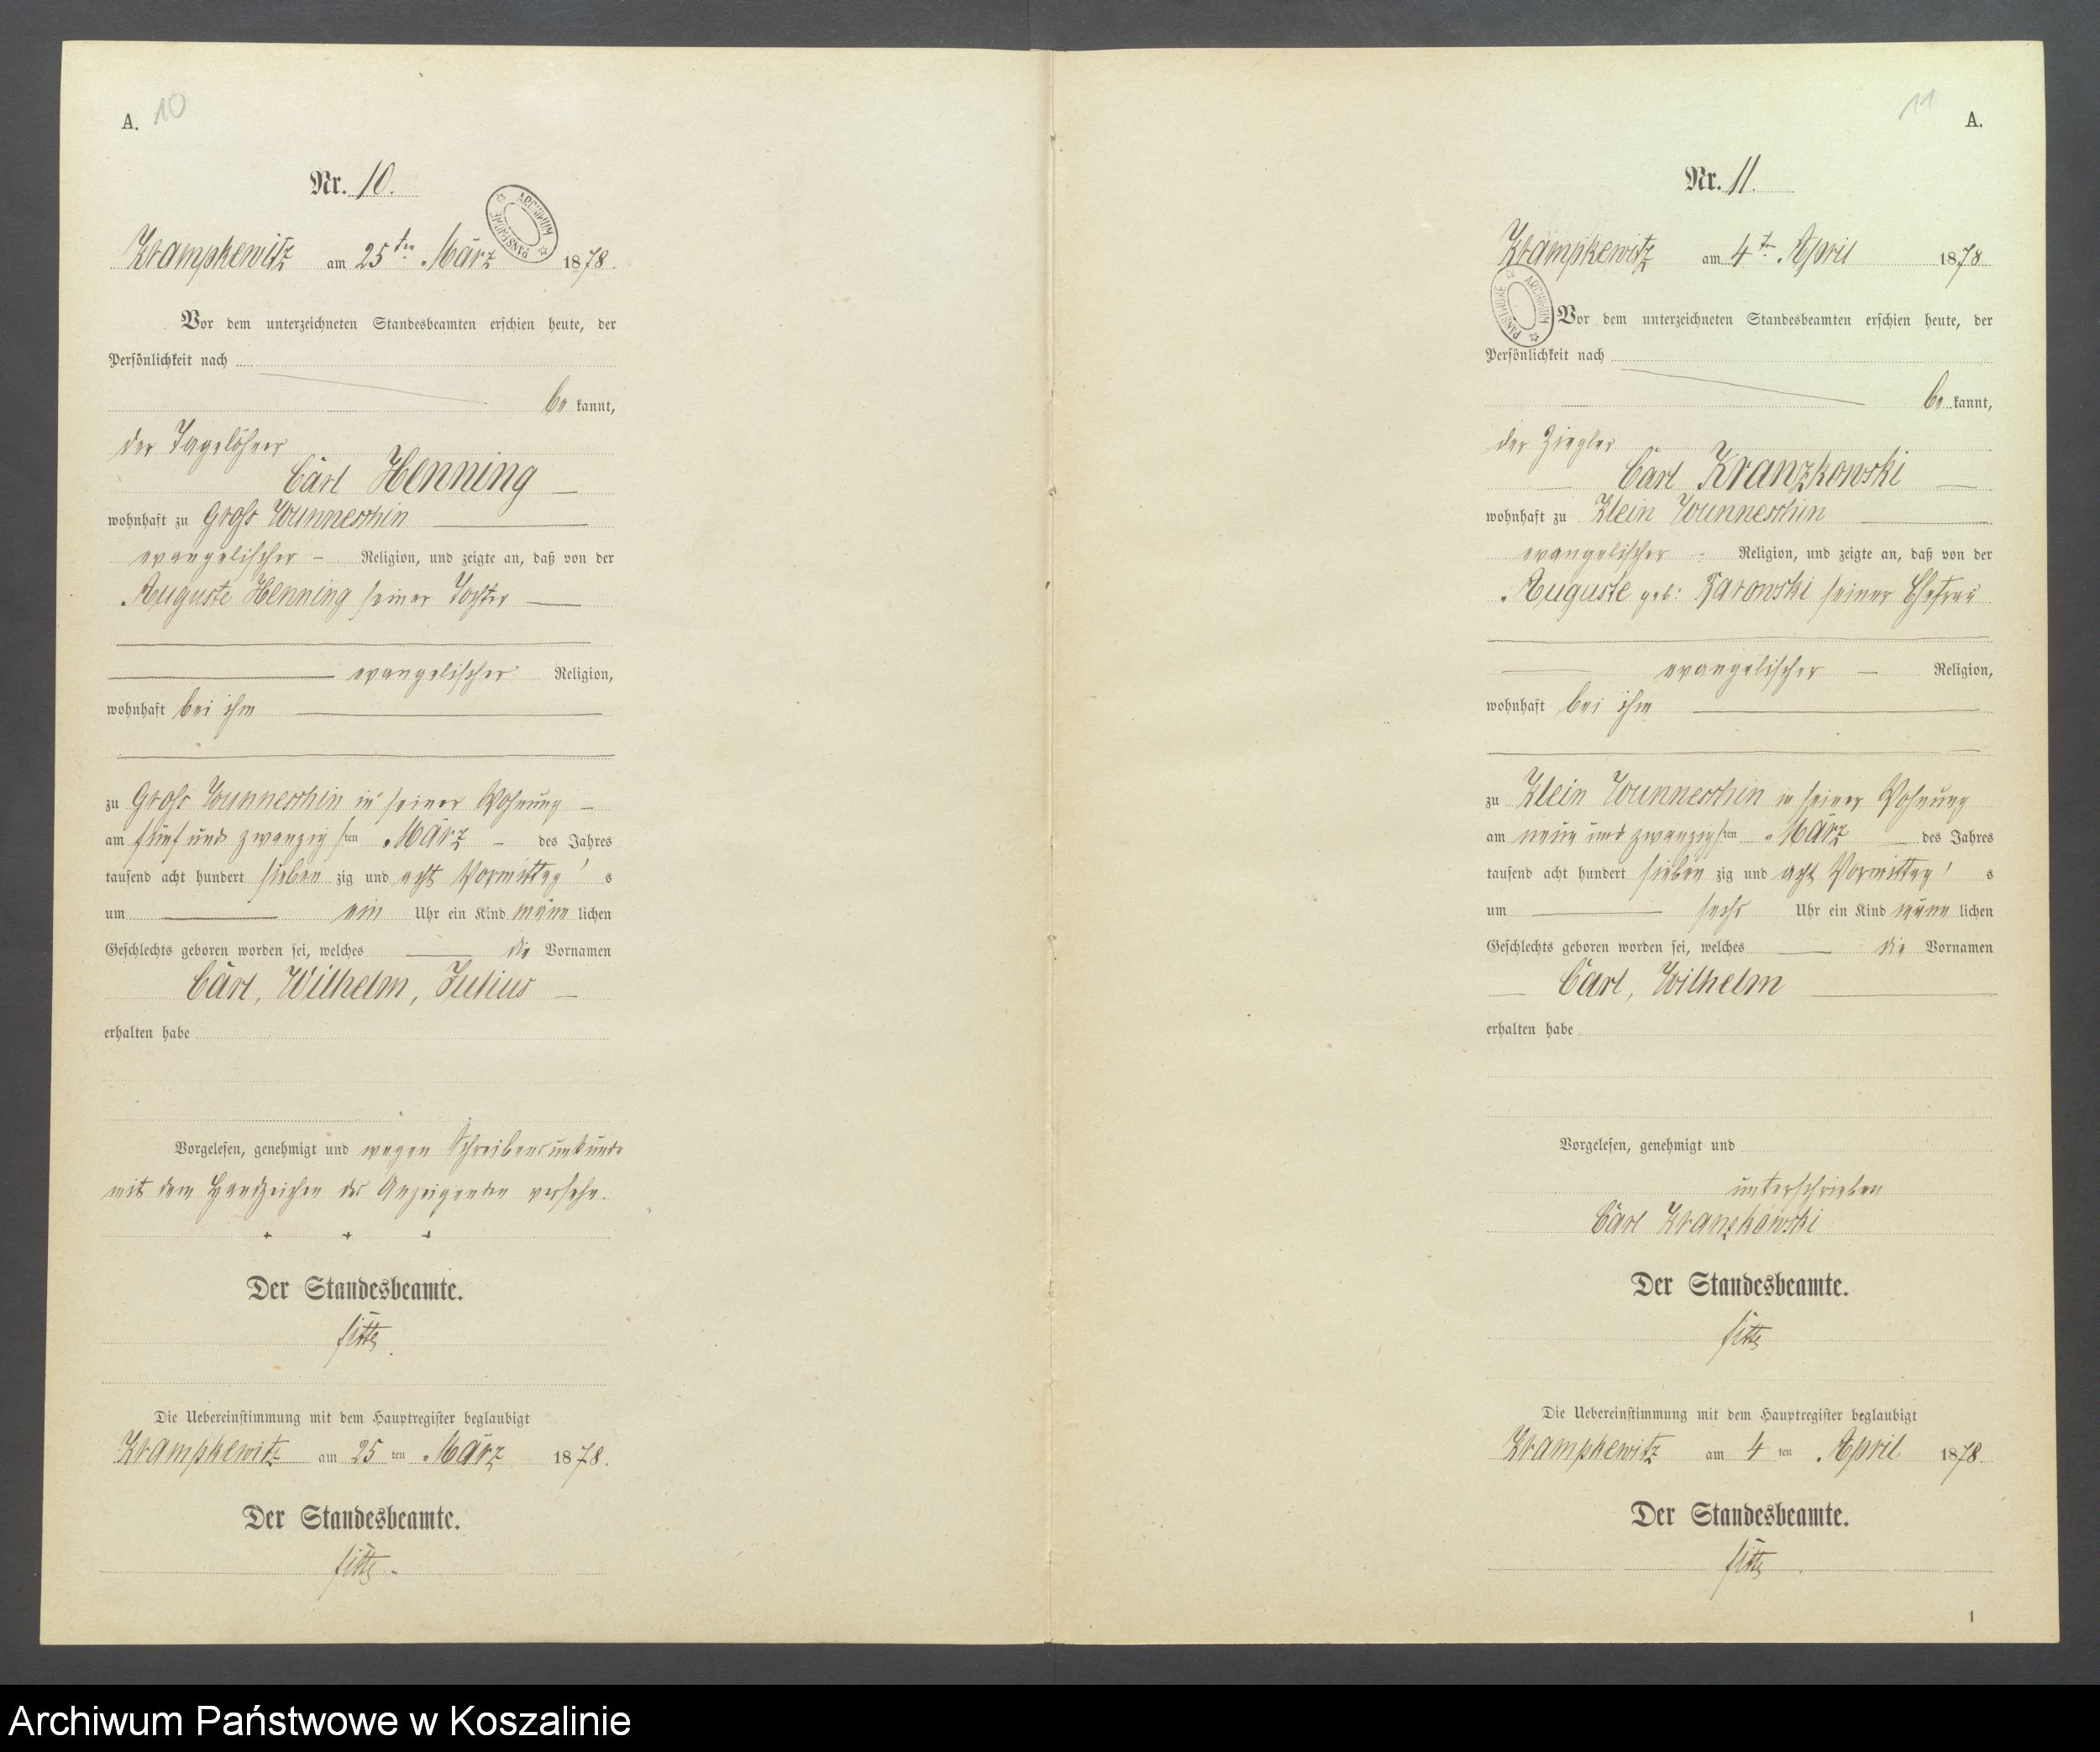 A. 10
Nr. 10.
ARCHIWUM PAŃSTWOWE
Krampkewitz am 25ten März 1878.
Vor dem unterzeichneten Standesbeamten erschien heute, der
Persönlichkeit nach
be kannt,
der Tagelöhner
Carl Henning
wohnhaft zu Groß Wunneschin
evangelischer Religion, und zeigte an, daß von der
Auguste Henning seiner Tochter
evangelischer Religion,
wohnhaft bei ihm
zu Groß Wunneschin in seiner Wohnung
am fünf und zwanzigsten März des Jahres
tausend acht hundert sieben zig und acht Vormittag s
um ein Uhr ein Kind männ lichen
Geschlechts geboren worden sei, welches die Vornamen
Carl, Wilhelm, Julius
erhalten habe
Vorgelesen, genehmigt und wegen Schreibensunkunde
mit dem Handzeichen des Anzeigenden versehn.
+ + +
Der Standesbeamte.
Die Uebereinstimmung mit dem Hauptregister beglaubigt
Krampkewitz am 25 ten März 1878.
Der Standesbeamte.
11 A.
Nr. 11.
Krampkewitz am 4ten April 1878
ARCHIWUM PAŃSTWOWE
Vor dem unterzeichneten Standesbeamten erschien heute, der
Persönlichkeit nach
be kannt,
der Ziegler
Carl Kranzkowski
wohnhaft zu Klein Wunneschin
evangelischer Religion, und zeigte an, daß von der
Auguste geb: seiner Ehefrau
evangelischer Religion,
wohnhaft bei ihm
zu Klein Wunneschin in seiner Wohnung
am neun und zwanzigsten März des Jahres
tausend acht hundert sieben zig und acht Vormittag s
um sechs Uhr ein Kind männ lichen
Geschlechts geboren worden sei, welches die Vornamen
Carl, Wilhelm
erhalten habe
Vorgelesen, genehmigt und
unterschrieben
Carl Kranzkowski
Der Standesbeamte.
Die Uebereinstimmung mit dem Hauptregister beglaubigt
Krampkewitz am 4 ten April 1878.
Der Standesbeamte.
1
Archiwum Państwowe w Koszalinie